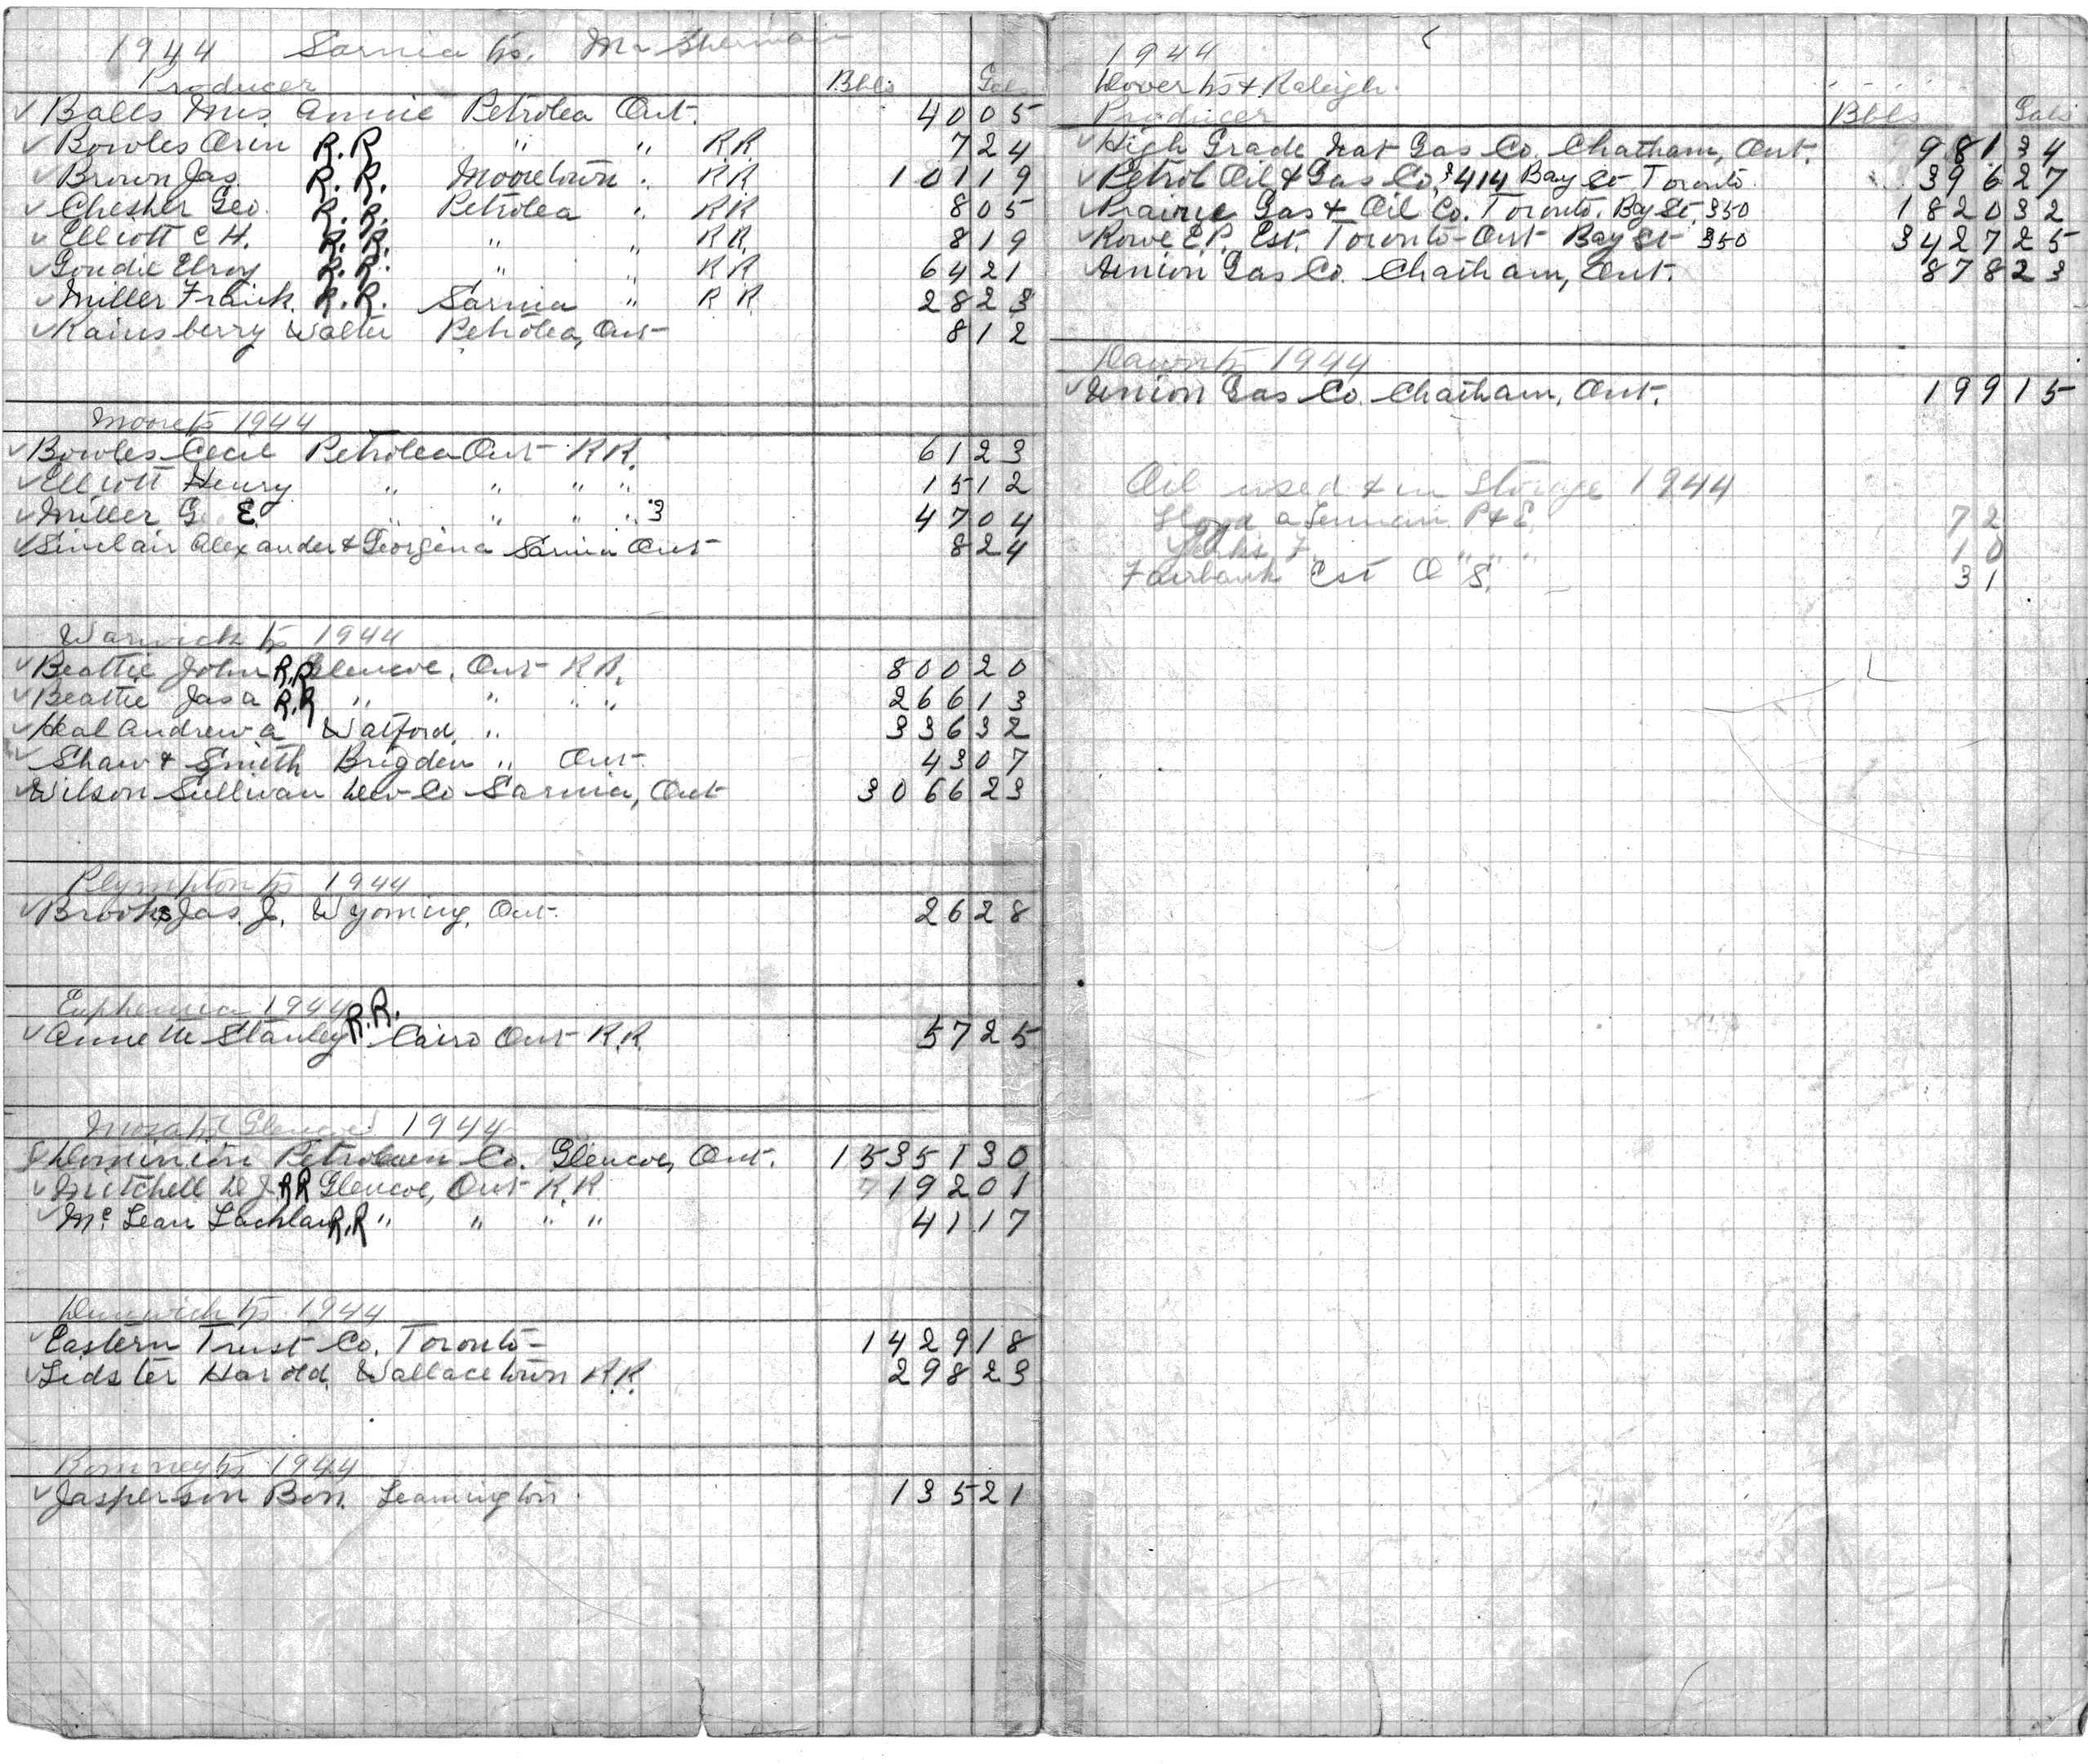 1944 Sarnia tp. Mr Sherman
Producer Bbls Gals
✓ Balls Mrs Annie Petrolea Ont. 40 05
✓ Bowles Orin R.R. " " R.R. 7 24
✓ Brown Jas. R.R. Mooretown " R.R. 101 19
✓ Chesher Geo. R.R. Petrolea " R.R. 8 05
✓ Elliott C H. R.R. " " R.R. 8 19
✓ Goudie Elroy R.R. " " R.R. 64 21
✓ Miller Frank. R.R. Sarnia " R.R. 28 23
✓ Rainsberry Walter Petrolea, Ont 8 12
Moore tp 1944
✓ Bowles Cecil Petrolea Ont R.R. 61 23
✓ Elliott Henry " " " " 15 12
✓ Miller Geo E. " " " " 3 47 04
✓ Sinclair Alexander & Georgina Sarnia Ont 8 24
Warwick tp 1944
✓ Beattie John R.R. Glencoe, Ont R.R. 800 20
✓ Beattie Jas A R.R " " " " 266 13
✓ Heal Andrew A Watford " 336 32
✓ Shaw & Smith Brigden " Ont. 43 07
✓ Wilson Sullivan Dev Co Sarnia, Ont 3066 23
Plympton tp 1944
✓ Brooks Jas. J. Wyoming, Ont. 26 28
Euphemia 1944
✓ Annett Stanley R.R. Cairo Ont R.R. 57 25
Mosa tp Glencoe 1944
✓ Dominion Petroleum Co. Glencoe, Ont. 15351 30
✓ Mitchell D J. R R Glencoe, Ont R.R. 7192 01
✓ Mc Lean Lachlan R.R " " " " 41 17
Dunwich tp. 1944
✓ Eastern Trust Co. Toronto 1429 18
✓ Lidster Harold Wallacetown R.R. 298 23
Romney tp 1944
✓ Jasperson Bon. Leamington. 135 21
1944
Dover tp & Raleigh.
Producer Bbls Gals
✓ High Grade Nat Gas Co. Chatham, Ont. 981 34
✓ Petrol Oil & Gas Co. 414 Bay St Toronto 396 27
✓ Prairie Gas & Oil Co. Toronto. Bay St. 350 1820 32
✓ Rowe E P. Est. Toronto - Ont Bay St 350 3427 25
✓ Union Gas Co. Chatham, Ont. 878 23
Dawn tp 1944
✓ Union Gas Co. Chatham, Ont. 199 15
Oil used & in Storage 1944
Lloyd P & E. 72
F. " " " 10
Fairbank Est O S. 31